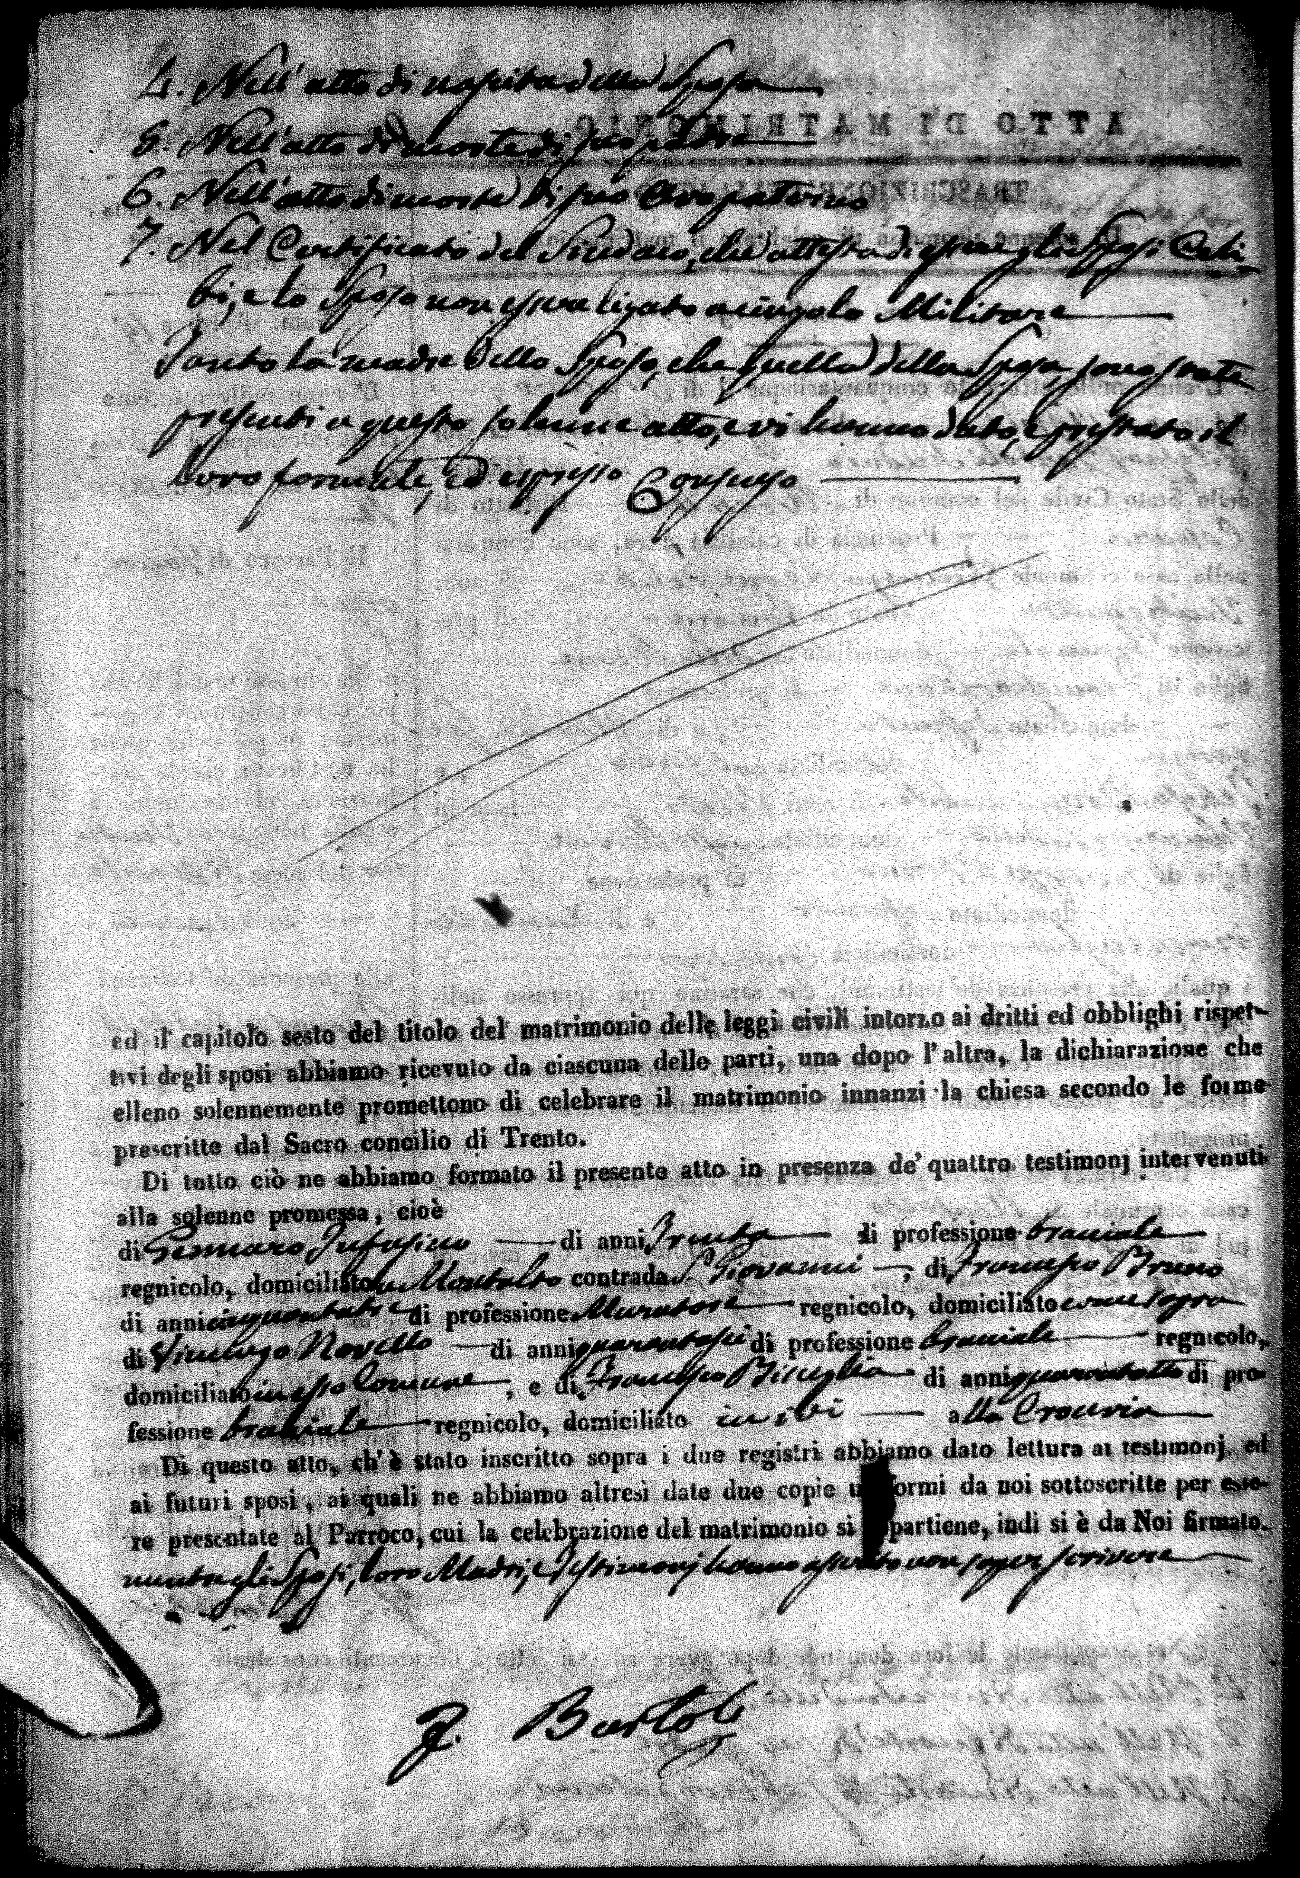 4. Nell'atto di nascita della Sposa
5. Nell'atto di morte di suo padre
6. Nell'atto di morte di suo Avo paterno
7. Nel Certificato del Sindaco, che attesta di essere gli Sposi Celi-
bi, e lo Sposo non essere ligato a cingolo Militare
Tanto la madre dello Sposo, che quella della Sposa, sono state
presenti a questo solenne atto, e vi hanno dato, e prestato il
loro formale, ed espresso Consenso
ed il capitolo sesto del titolo del matrimonio delle leggi civili intorno ai dritti ed obblighi rispet-
tivi degli sposi abbiamo ricevuto da ciascuna delle parti, una dopo l'altra, la dichiarazione che
elleno solennemente promettono di celebrare il matrimonio innanzi la chiesa secondo le forme
prescritte dal Sacro concilio di Trento.
Di tutto ciò ne abbiamo formato il presente atto in presenza de' quattro testimonj intervenuti
alla solenne promessa, cioè
di Gennaro di anni Trenta di professione bracciale
regnicolo, domiciliato in Montalto contrada S. Giovanni, di Francesco Bruno
di anni cinquantatre di professione Muratore regnicolo, domiciliato come sopra
di Vincenzo Novello di anni quarantasei di professione bracciale regnicolo,
domiciliato in esso Comune, e di Francesco Bisceglia di anni quarantotto di pro-
fessione bracciale regnicolo, domiciliato in ivi alla
Di questo atto, ch'è stato inscritto sopra i due registri abbiamo dato lettura ai testimonj, ed
ai futuri sposi, ai quali ne abbiamo altresì date due copie uniformi da noi sottoscritte per esse-
re presentate al Parroco, cui la celebrazione del matrimonio si appartiene, indi si è da Noi firmato.
mentre gli Sposi, loro Madri, e Testimonj hanno asserito non saper scrivere
F. Bartoli